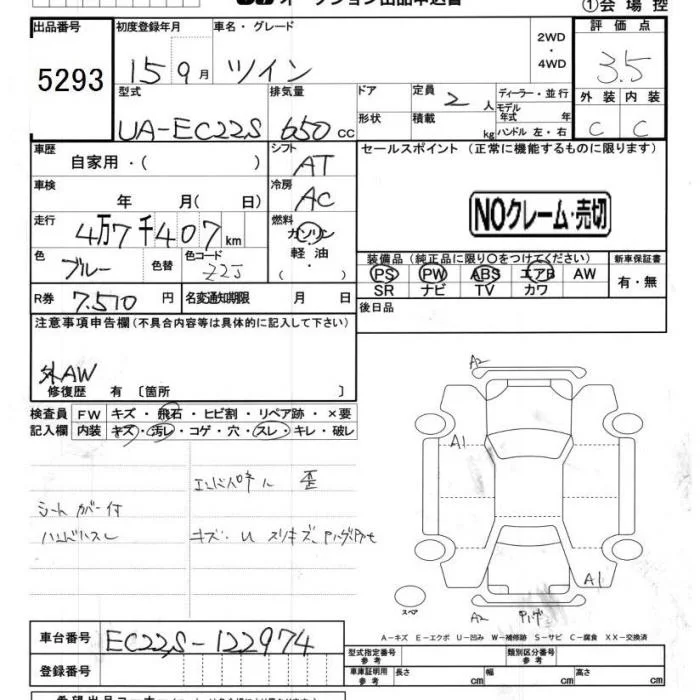 オークション出品申込書
①会場控
出品番号 初度登録年月 車名・グレード 2WD・4WD 評価点
5293 15 9月 ツイン 3.5
型式 排気量 ドア 定員 2人 ディーラー・並行 外装 内装
モデル年式 年
UA-EC22S 650cc 形状 積載 kg ハンドル 左・右 C C
車歴 シフト セールスポイント (正常に機能するものに限ります)
自家用・( ) AT
車検 冷房
年 月( 日) AC
NOクレーム・売切
走行 燃料
4万7千407km ガソリン
軽油
・( )
色 色替 色コード 装備品 (純正品に限り○をつけてください) 新車保証書
ブルー Z2J PS PW ABS エアB AW 有・無
SR ナビ TV カワ
R券 7.510円 名変通知期限 月 日 後日品
注意事項申告欄(不具合内容等は具体的に記入して下さい)
外AW
修復歴 有 〔箇所 〕
A2
検査員 FW キズ・飛石・ヒビ割・リペア跡・×要
記入欄 内装 キズ・汚レ・コゲ・穴・スレ・キレ・破レ
A1
エンドパネル 歪
シートカバー付
キズ・U スリキズ、
A1
スペア
A2 ハゲ
A-キズ E-エクボ U-凹み W-補修跡 S-サビ C-腐食 XX-交換済
車台番号 EC22S-122974 型式指定番号 参考 類別区分番号 参考
登録番号 車庫証明用 参考 長さ cm 幅 cm 高さ cm